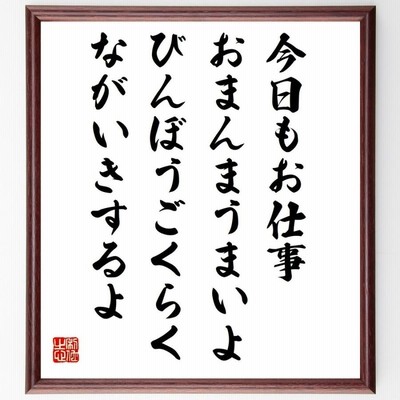 今日もお仕事
おまんまうまいよ
びんぼうごくらく
ながいきするよ